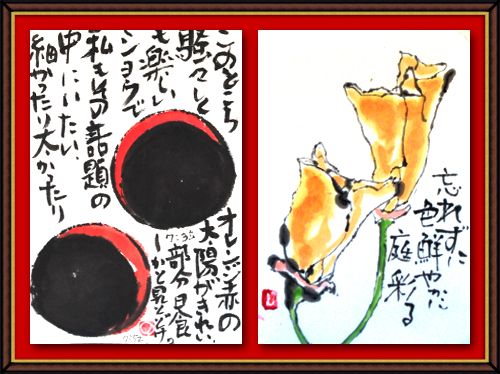 このところ
も楽しい
ショウで
私もその話題の
中にいたい、
細かったり太かったり
オレンジ赤の
太陽がきれい
部分日食
しかと見とどけ。
忘れずに
色鮮やかに
庭彩る